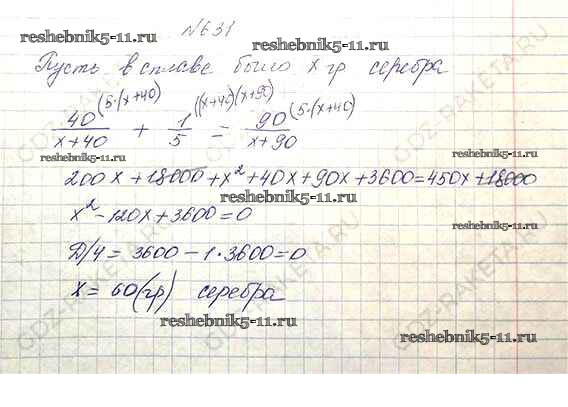 №631
reshebnik5-11.ru
reshebnik5-11.ru
Пусть в сплаве было x гр серебра
40 (5·(x+40) / x+40 + 1 ((x+40)(x+90) / 5 = 90 (5·(x+40) / x+90
reshebnik5-11.ru
reshebnik5-11.ru
200x+18000+x²+40x+90x+3600=450x+18000
x²-120x+3600=0
reshebnik5-11.ru
Д/4= 3600-1·3600=0
x= 60(гр) серебра
reshebnik5-11.ru
reshebnik5-11.ru
GDZ-RAKETA.RU
GDZ-RAKETA.RU
GDZ-RAKETA.RU
GDZ-RAKETA.RU